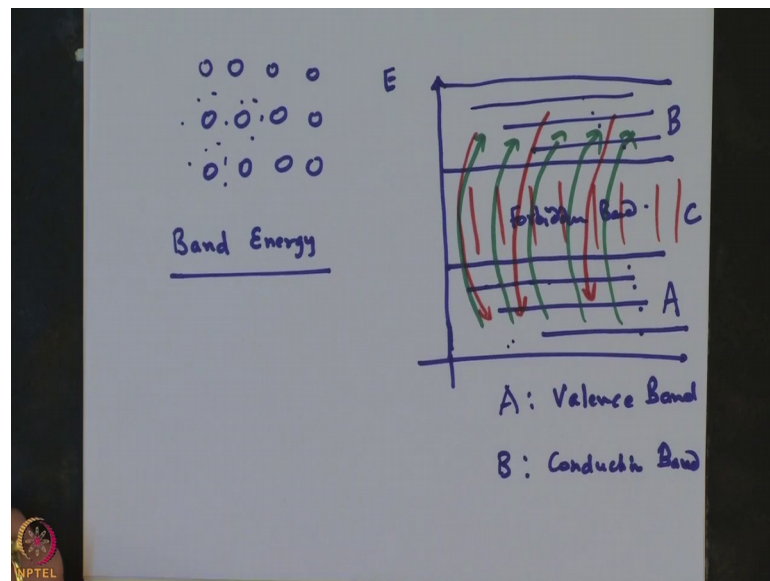 Band Energy
E
B
Forbidden Band
C
A
A: Valence Band
B: Conductin Band
NPTEL